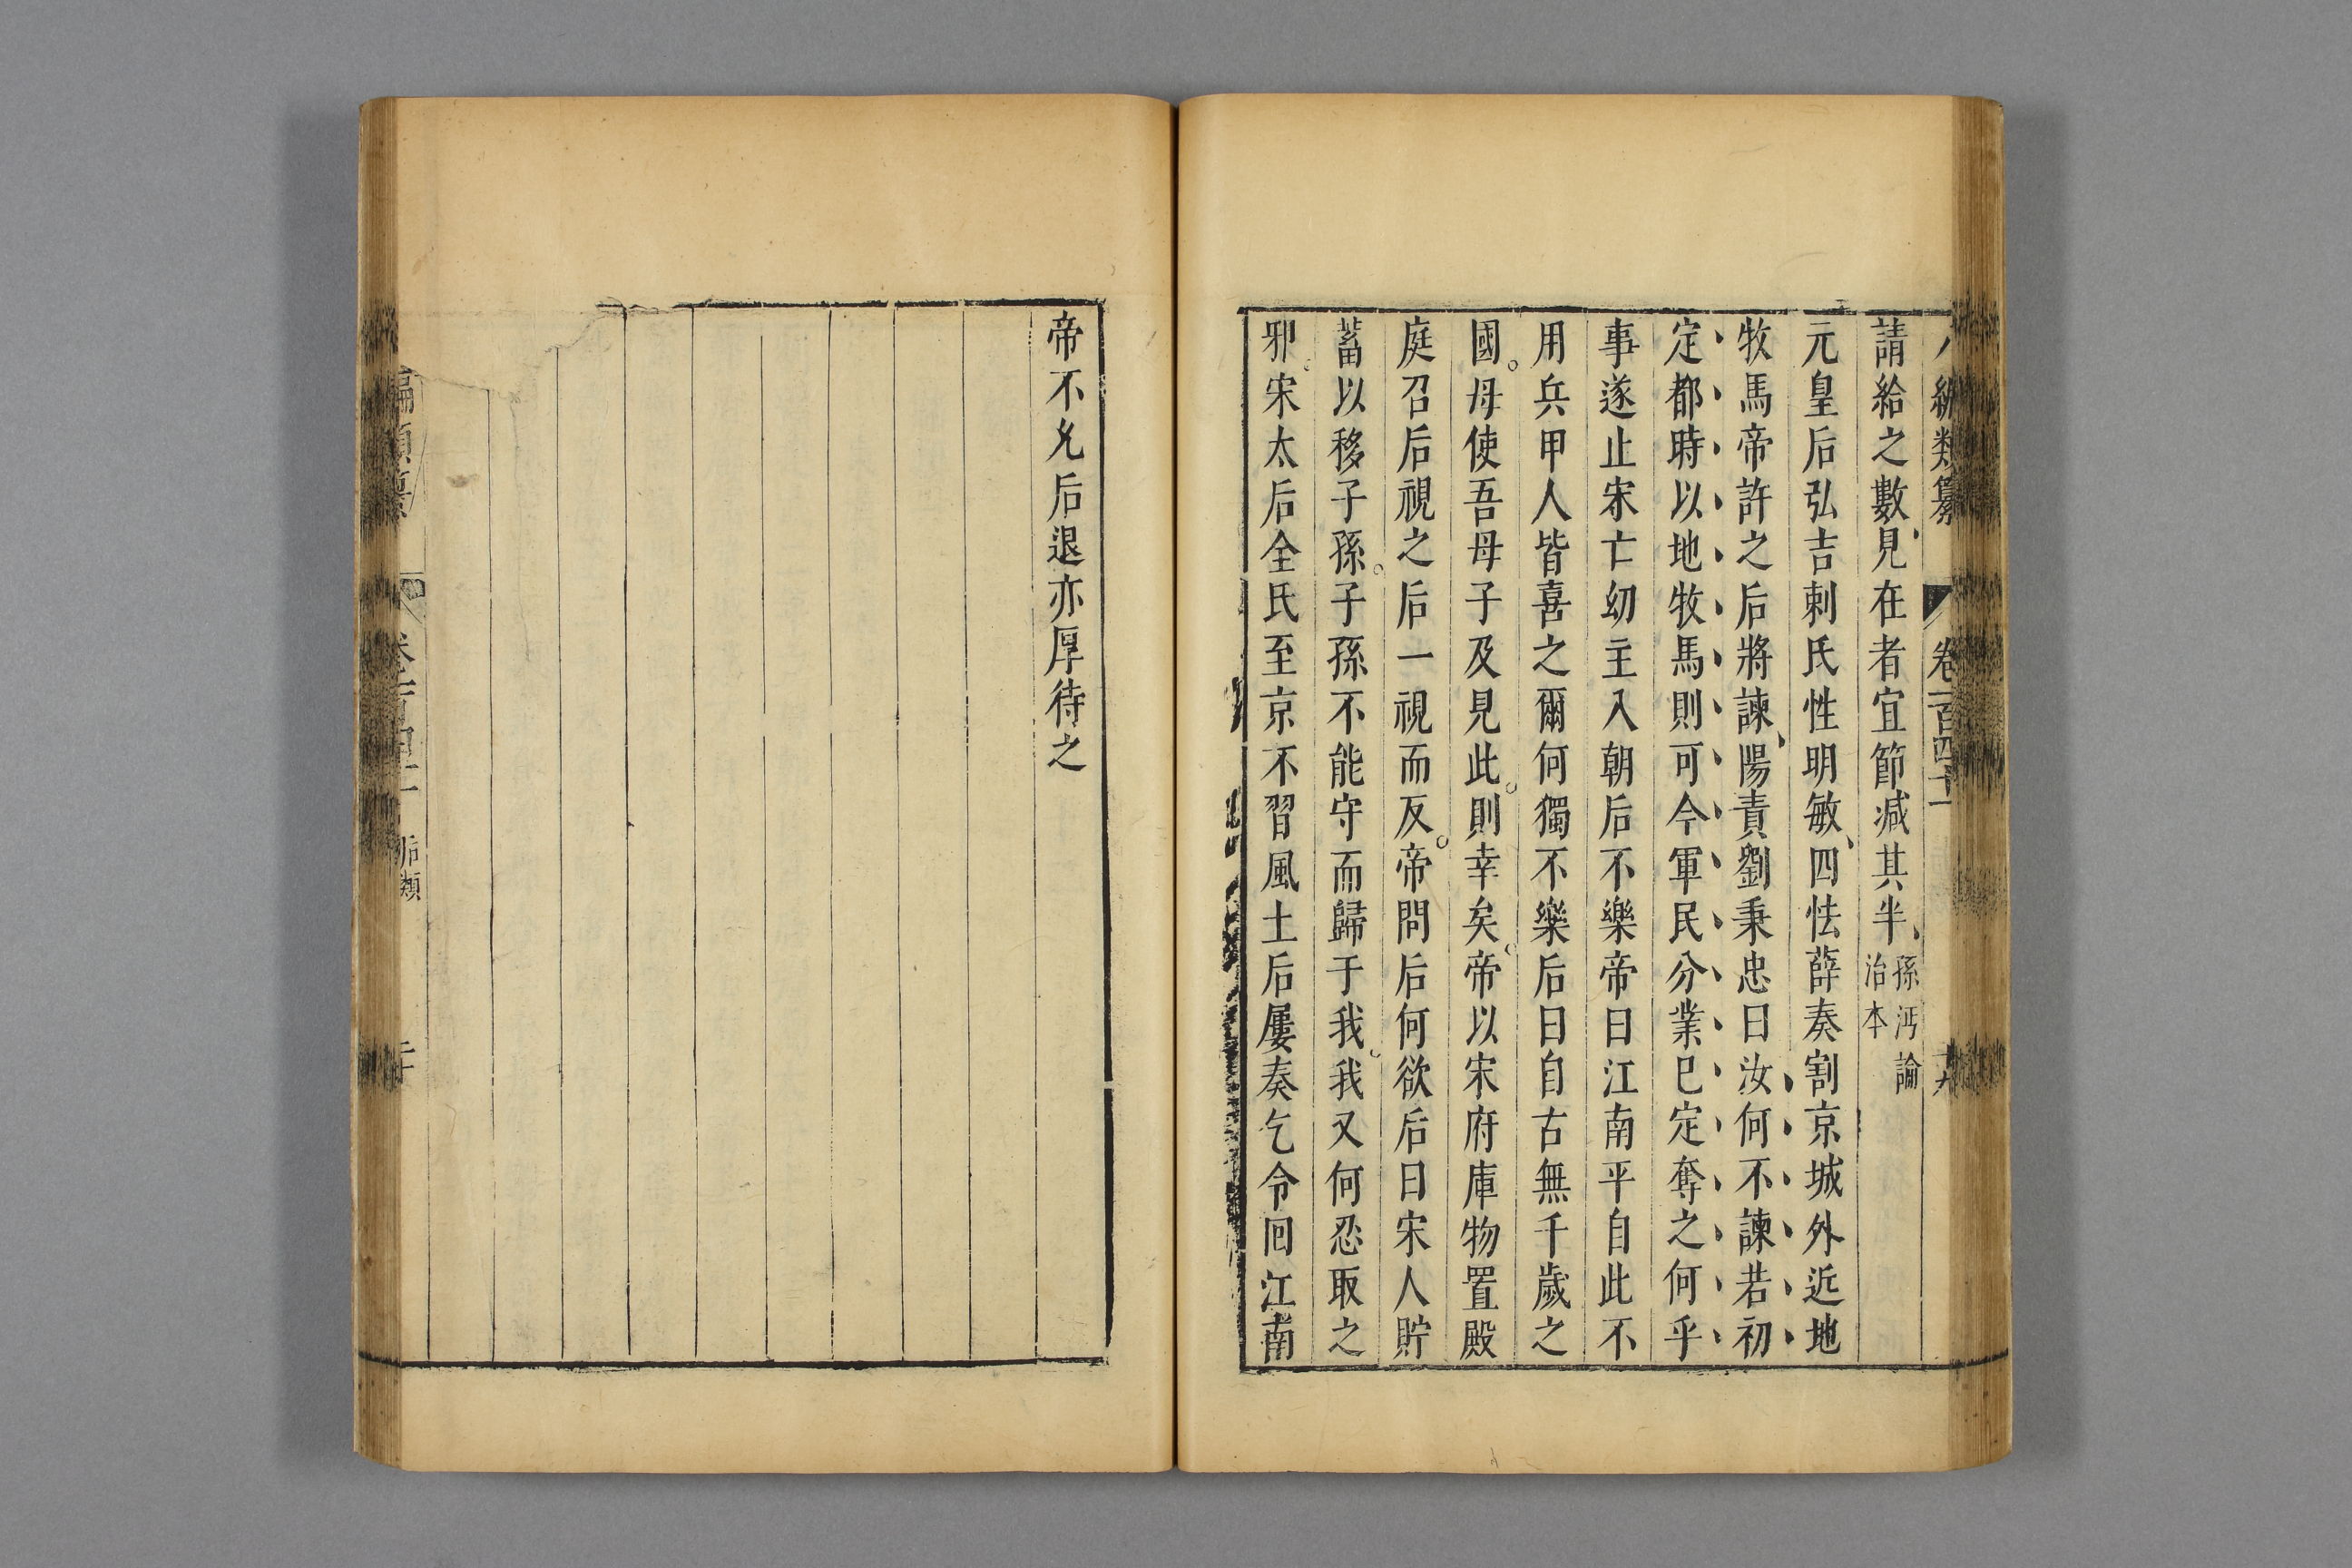 編類纂 卷一百四十一 十九
請給之數見在者宜節减其半 孫沔論治本
元皇后弘吉剌氏性明敏四怯薛奏割京城外近地
牧馬帝許之后將諫陽責劉秉忠曰汝何不諫若初
定都時以地牧馬則可今軍民分業已定奪之何乎
事遂止宋亡幼主入朝后不樂帝曰江南平自此不
用兵甲人皆喜之爾何獨不樂后曰自古無千歲之
國母使吾母子及見此則幸矣帝以宋府庫物置殿
庭召后視之后一視而反帝問后何欲后曰宋人貯
蓄以移子孫子孫不能守而歸于我我又何忍取之
邪宋太后全氏至京不習風土后屢奏乞令回江南
帝不允后退亦厚待之
編類纂 卷一百四十一 后類